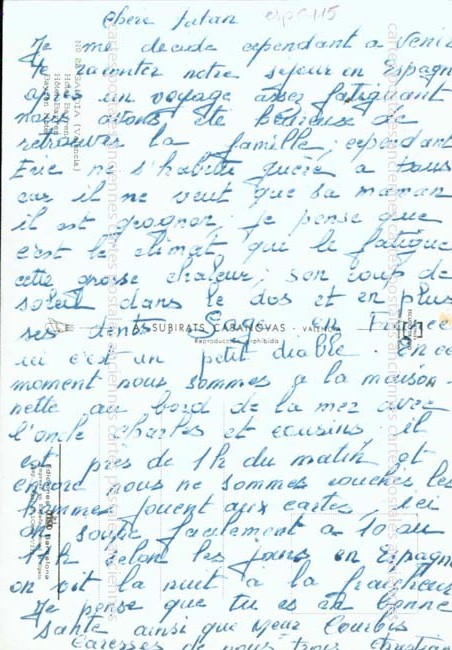 Chère Tatan
Je me decide cependant a venir
te raconter notre sejour en Espagn
après un voyage assez fatiguant
nous avons été heureuse de
retrouver la famille; cependant
Eric ne s'habitue guère a tous
car il ne veut que sa maman
il est grognon; je pense que
c'est le climat que le fatigue
cette grosse chaleur; son coup de
soleil dans le dos et en plus
ses dents Sage en France
ici c'est un petit diable. En ce
moment nous sommes a la maison
nette au bord de la mer avec
l'oncle Charles et cousins il
est près de 1h du matin et
encore nous ne sommes couchés les
hommes jouent aux cartes, ici
on soupe facilement a 10 ou
11h selon les jours en Espagn
on vit la nuit à la fraicheur
Je pense que tu es en bonne
santé ainsi que
Caresses de nous trois Christian
SUBIRATS CASANOVAS - VALENCIA
Reproducción prohibida
GANDIA (Valencia)
Barcelona
cartes postales anciennes